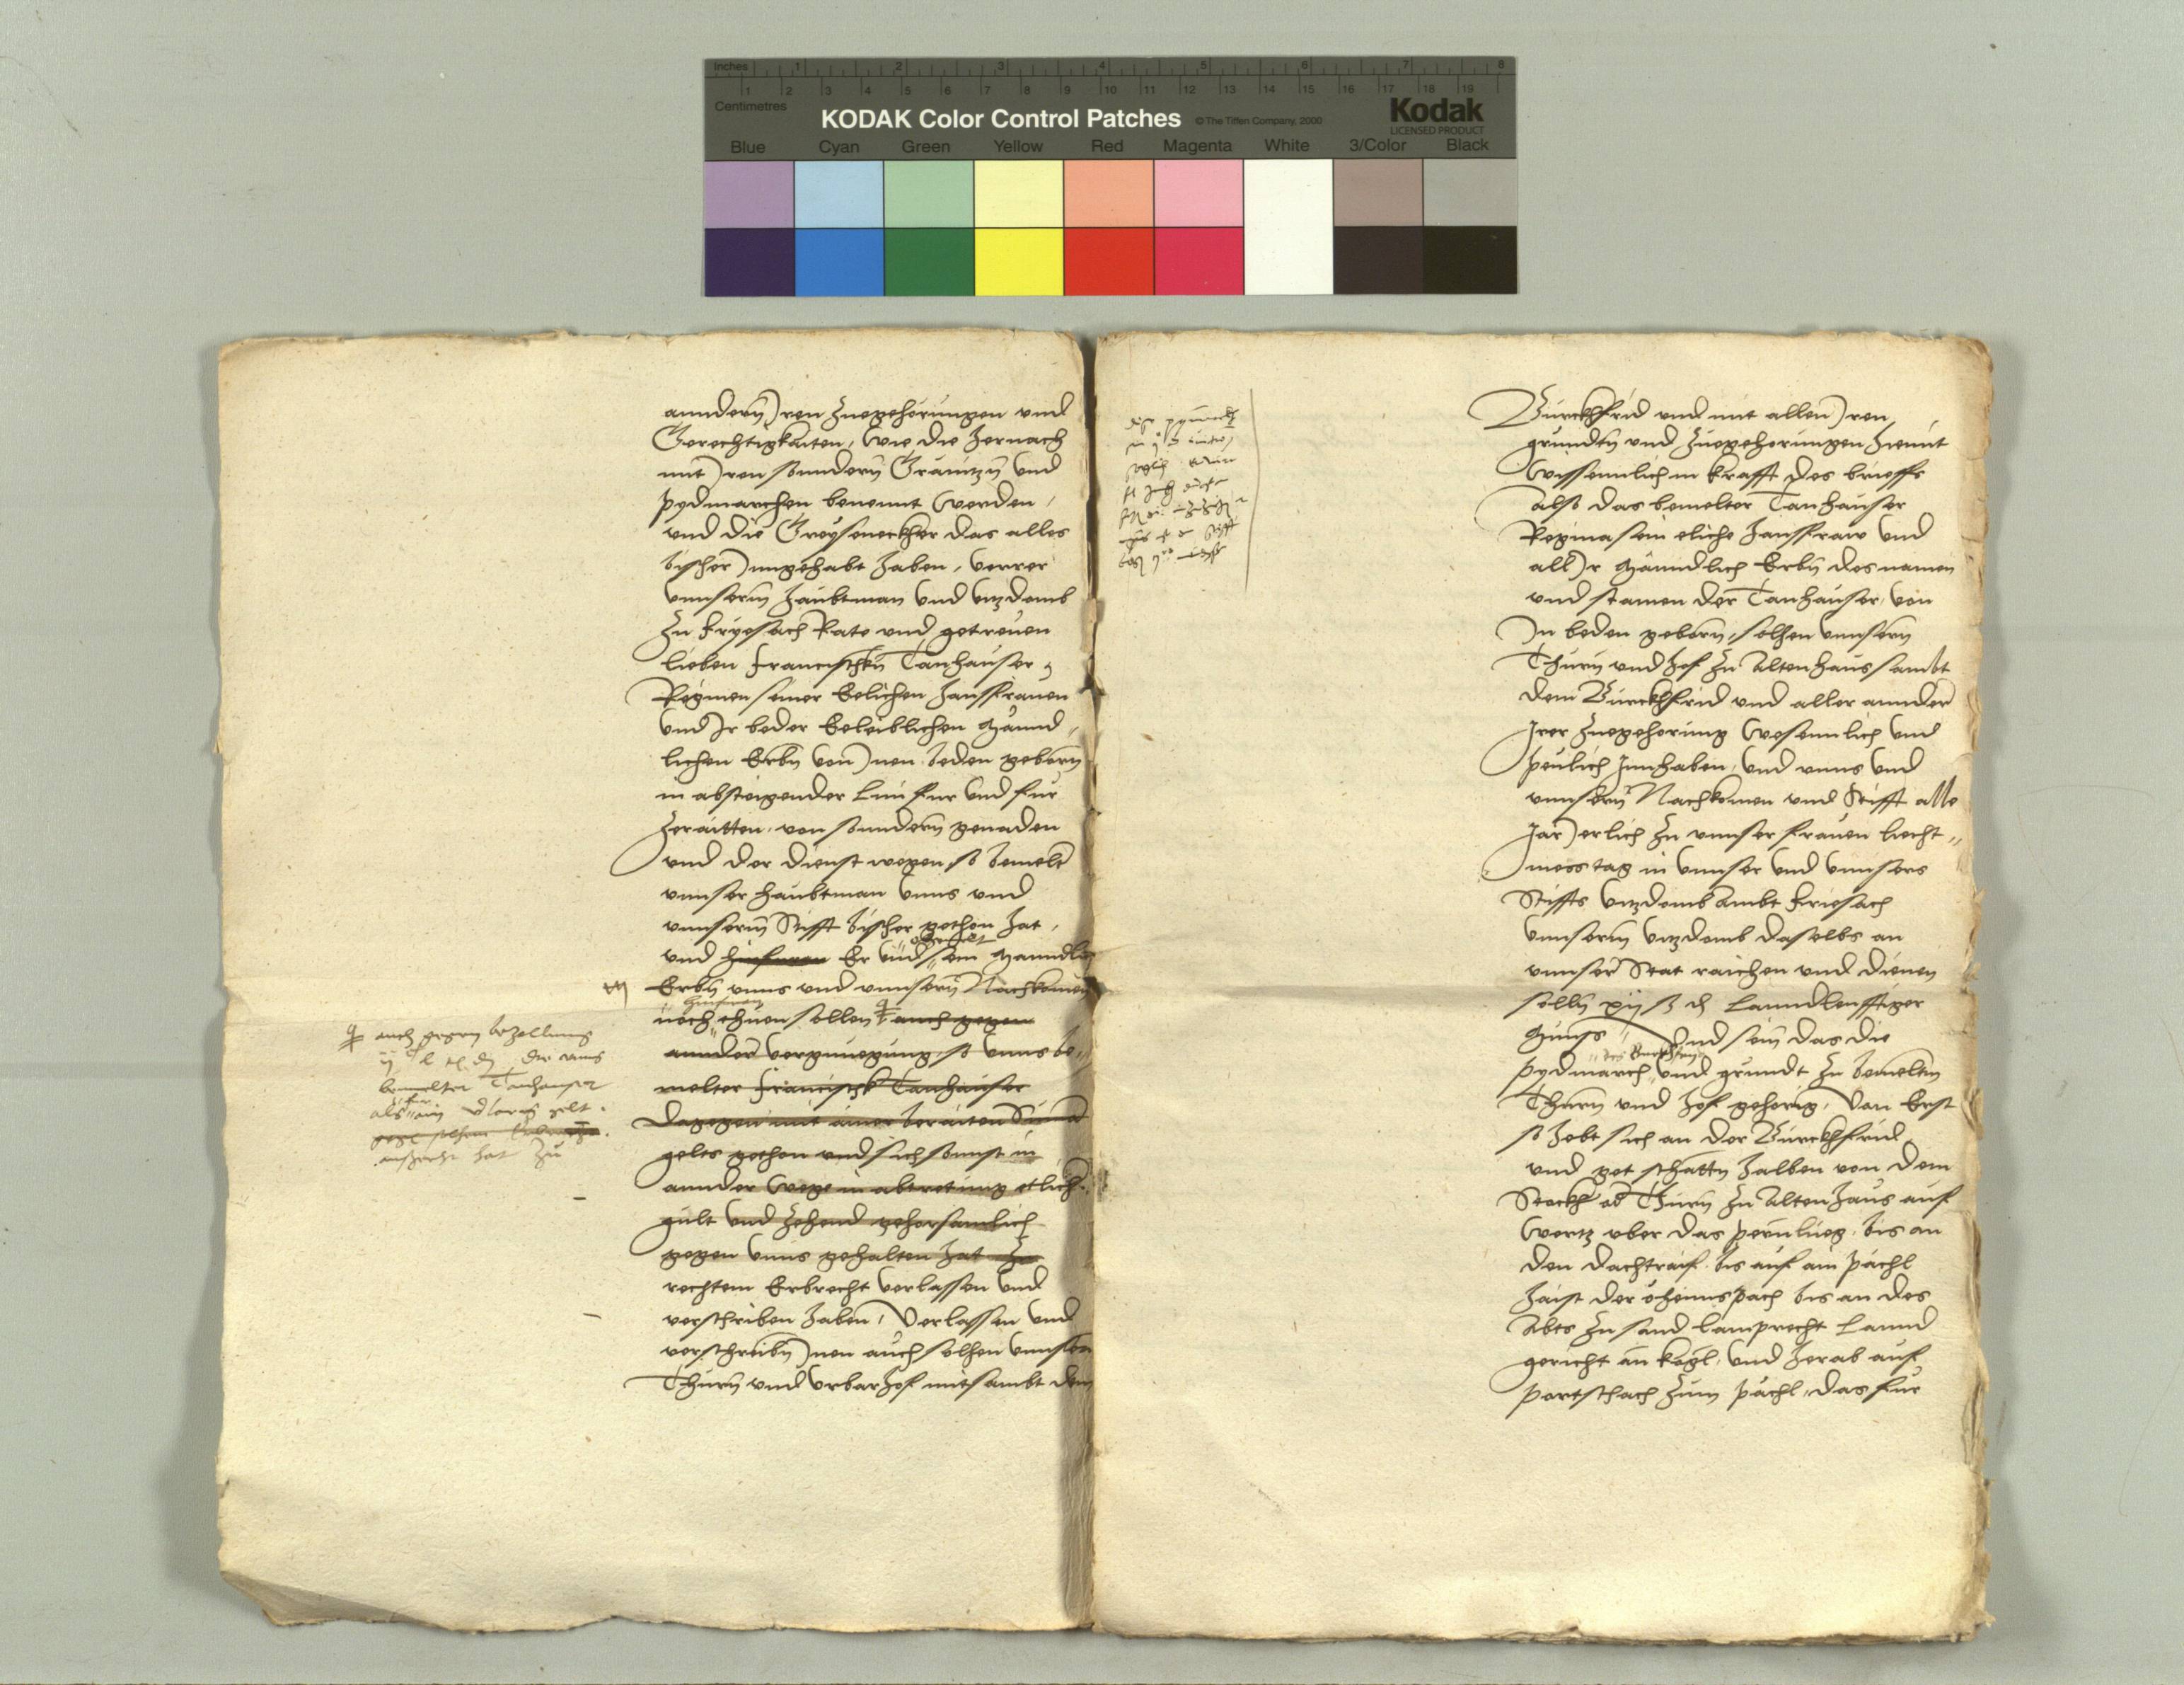 Inches 1 2 3 4 5 6 7 8
Centimetres 1 2 3 4 5 6 7 8 9 10 11 12 13 14 15 16 17 18 19
KODAK Color Control Patches © The Tiffen Company, 2000 Kodak
LICENSED PRODUCT
Blue Cyan Green Yellow Red Magenta White 3/Color Black
anndern Iren Zuegehorungen vnd
Gerechtigkaiten, Wie die hernach
mit Iren sondern Gränitzn vnd
pydmarchen benennt werden,
vnd die Greyseneckher das alles
bisher Inngehabt haben, verrer
vnnserm haubtman vnd vitzdomb
zu Fryesach Rate vnd getreuen
lieben Francisckn Tanhauser,
Reginen seiner Eelichen hausfrauen
vnd Ir beder Eeleiblichen Männd,
lichen Erbn von Inen beden geborn
in absteigender Lini fur vnd fur
heraitten, von sondern genaden
vnd der dienst wegen, so bemelt
vnnser haubtman vnns vnd
vnnserm Stifft bisher gethon hat,
vnd hinfuran Er vnd sein Manndlich
Erbn vnns vnd vnnsern Nachkomen
hinfuran
noch thuen sollen auch gegen
annder vergnuegung, so vnns be,,
melter Francisck Tanhauser
dagegen mit ainer beraiten Suma
gelts gethon vnd sich sonnst in
annder wege in abtretung etlich
gült vnd zehend gehorsamlich
gegen vnns gehalten hat zu
rechtem Erbrecht verlassen vnd
verschriben haben, Verlassen vnd
verschreibn Inen auch solhen vnnsern
Thurn vnd vrbarhof mitsambt dem
auch gegen bezallung
der vnns
bemelter Tanhauser
als ain
hat zu
Burckhfrid vnd mit allen Iren
grundtn vnd Zuegehorungen hiemit
Wissenlich in krafft des brieffs
also das bemelter Tanhauser
Regina sein eliche hausfraw vnd
all Ir Männdlich Erbn des namen
vnd stamen der Tanhauser, von
In beden geborn, solhen vnnsern
Thurn vnd hof zu Altenhaus sambt
dem Burckhfrid vnd aller annder
Irer Zuegehorung Wesennlich vnd
peulich Innhaben, vnd vnns vnd
vnnsern Nachkomen vnd Stifft alle
Jar Ierlich zu vnnser frauen liecht,,
mess tag in vnnser vnd vnnsers
Stiffts vitzdomb Ambt Friesach
vnnserm vitzdomb daselbs an
vnnser Stat raichen vnd dienen
solln xij ß d Lanndlenffiger
Münss, Vnd sein das die
des Burckhfrid
pydmarch vnd grundt zu bemeltn
Thurn vnd hof gehorig, Von Erst
so hebt sich an der Burckhfrid
vnd get schattn halben von dem
Stockh ob Thurn zu Altenhaus auf
Wertz vber das bis an
den dachtraif bis auf ain pächl
haist der bis an des
Abts zu sand Lamprecht Lannd
gericht an kogl, vnd herab auf
portschach zum pächl, das fur